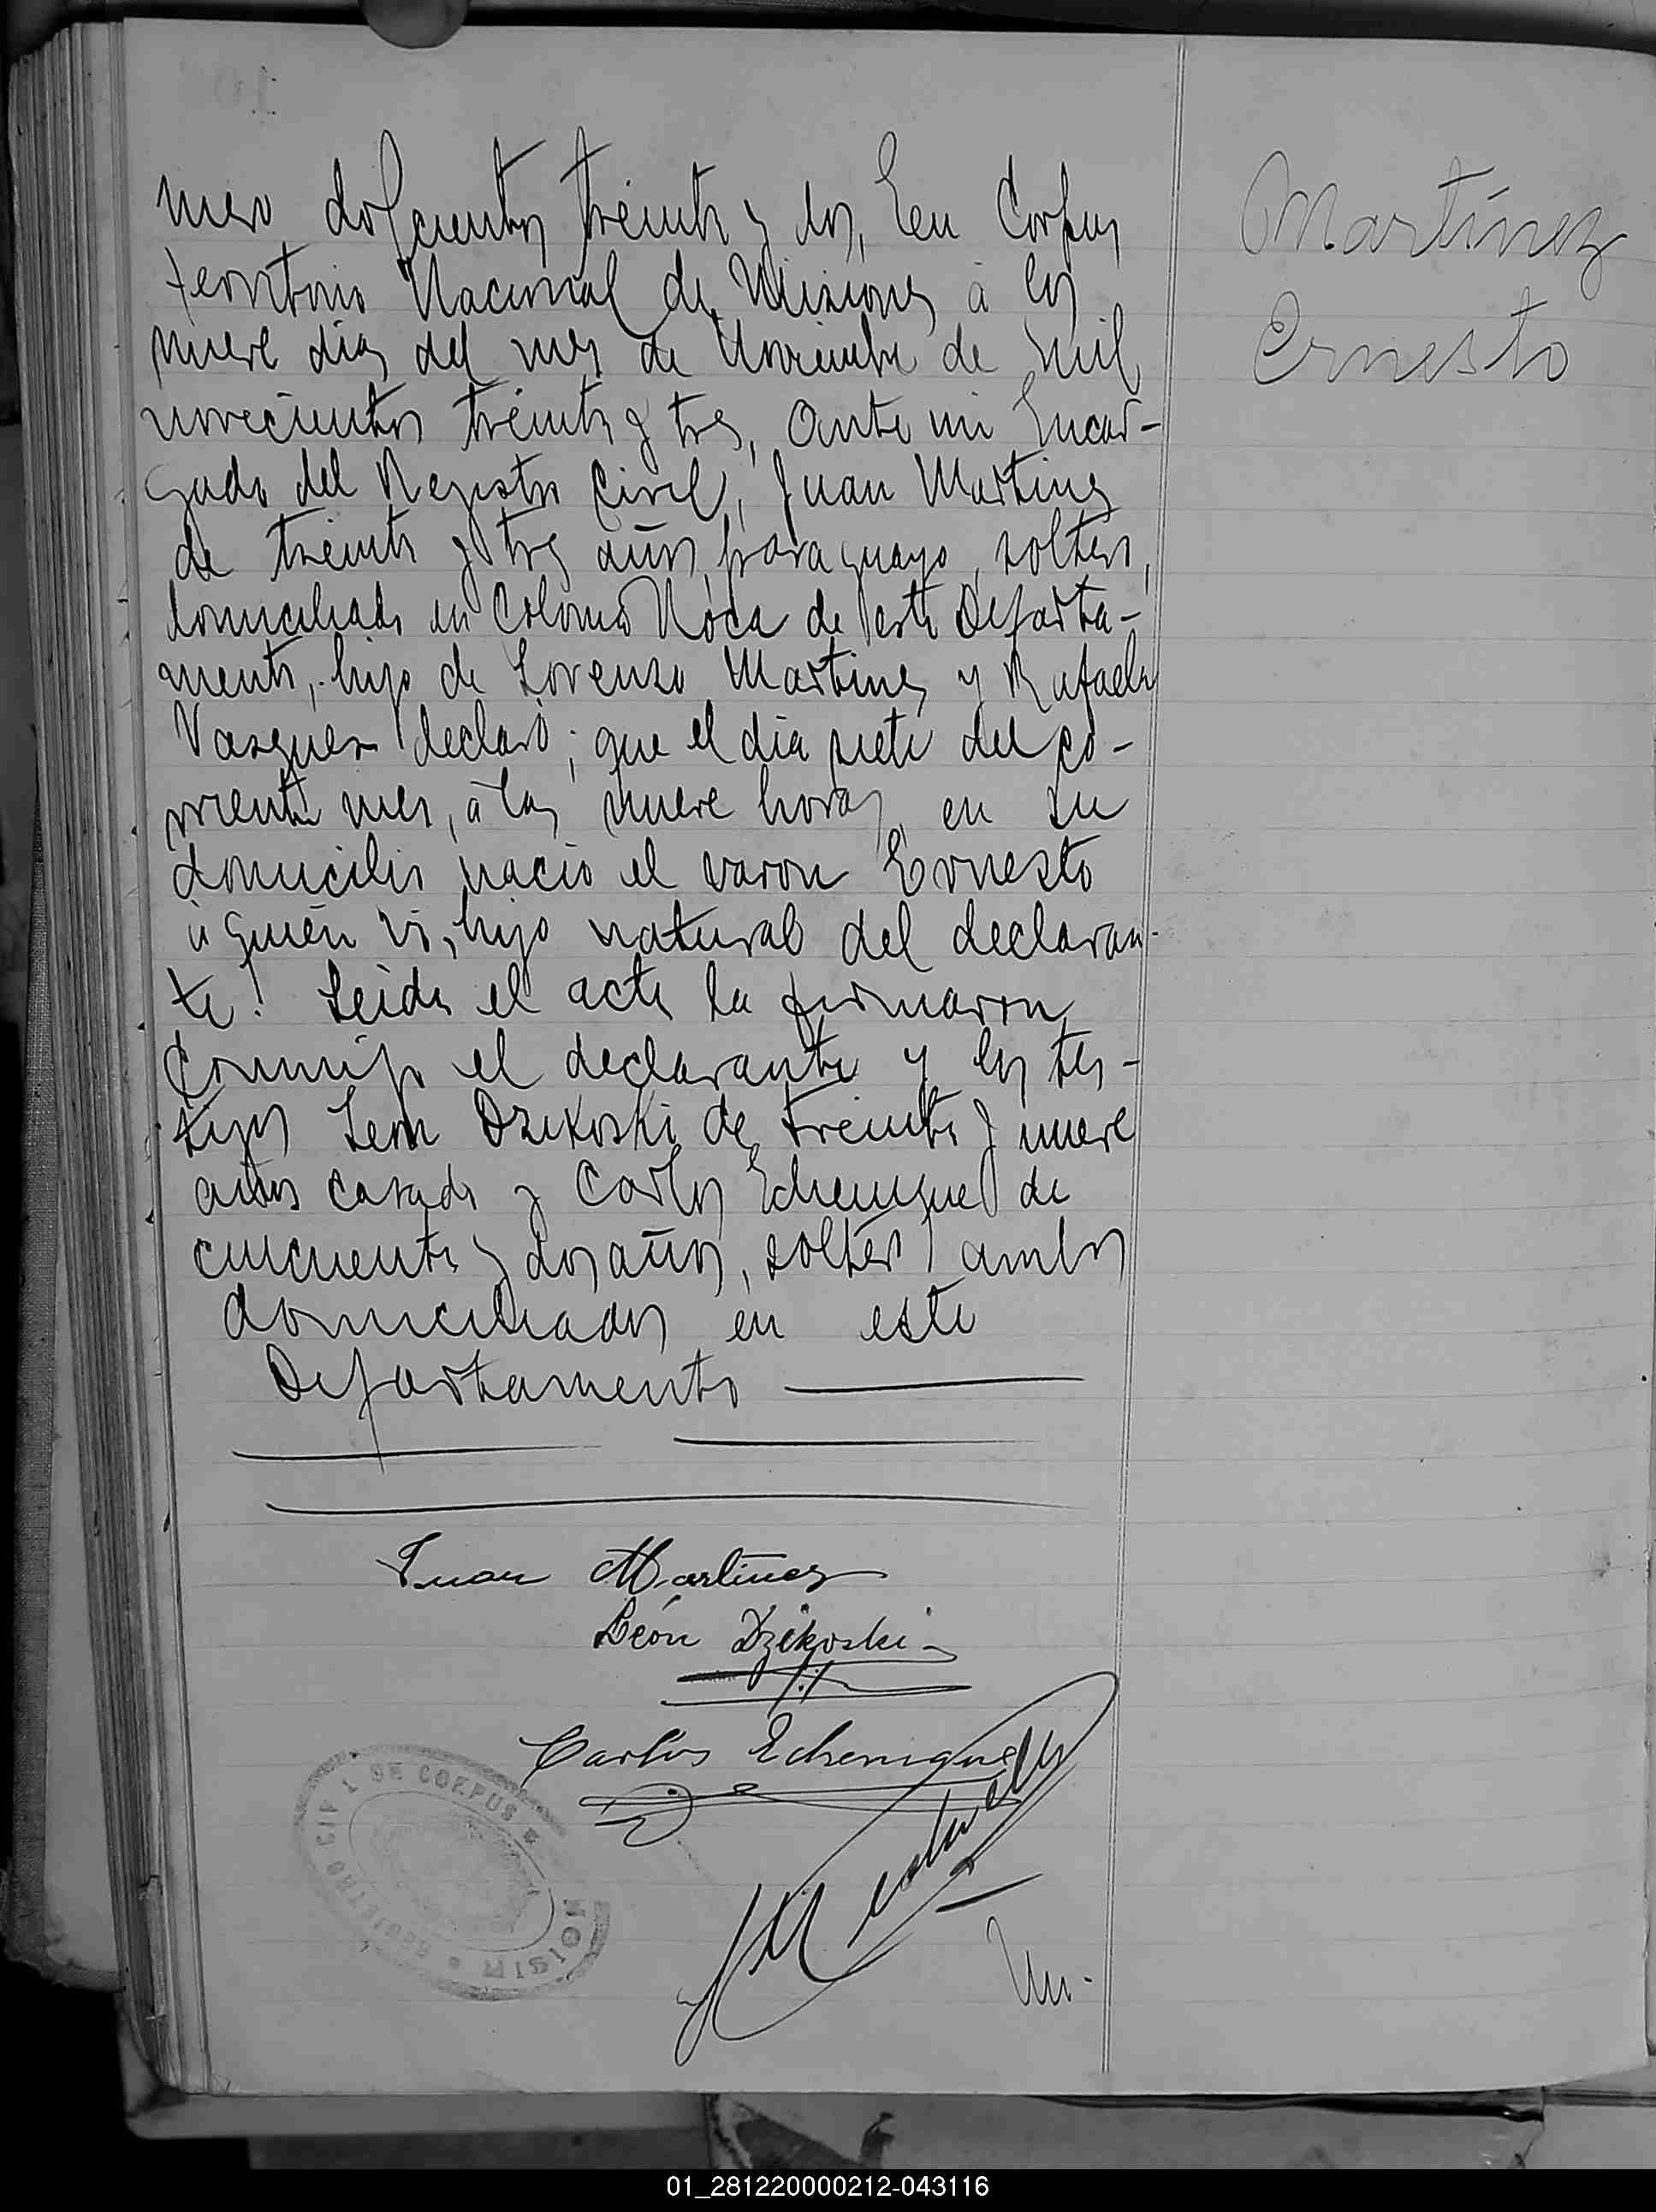 mero doscientos treinta y dos, En Corpus
territorio Nacional de Misiones á los
nueve dias del mes de Noviembre de mil
novecientos treinta y tres, Ante mi Encar-
gado del Registro Civil, Juan Martinez
de treinta y tres años, paraguayo, soltero,
domiciliado en Colonia Roca de este Departa-
mento, hijo de Lorenzo Martinez y Rafaela
Vazquez declaró; que el dia siete del co-
rriente mes, á las nueve horas, en su
domicilio nació el varon Ernesto
á quién vi, hijo natural del declaran-
te. Leida el acta la firmaron
conmigo el declarante y los tes-
tigos Leon Dzikoski de treinta y nueve
años casado y Carlos Echenique de
cincuenta y dos años, soltero, ambos
domiciliados en este
Departamento
Martínez
Ernesto
Juan Martinez
León Dzikoski
Carlos Echenique
REGISTRO CIVIL DE CORPUS * MISION
01_281220000212-043116